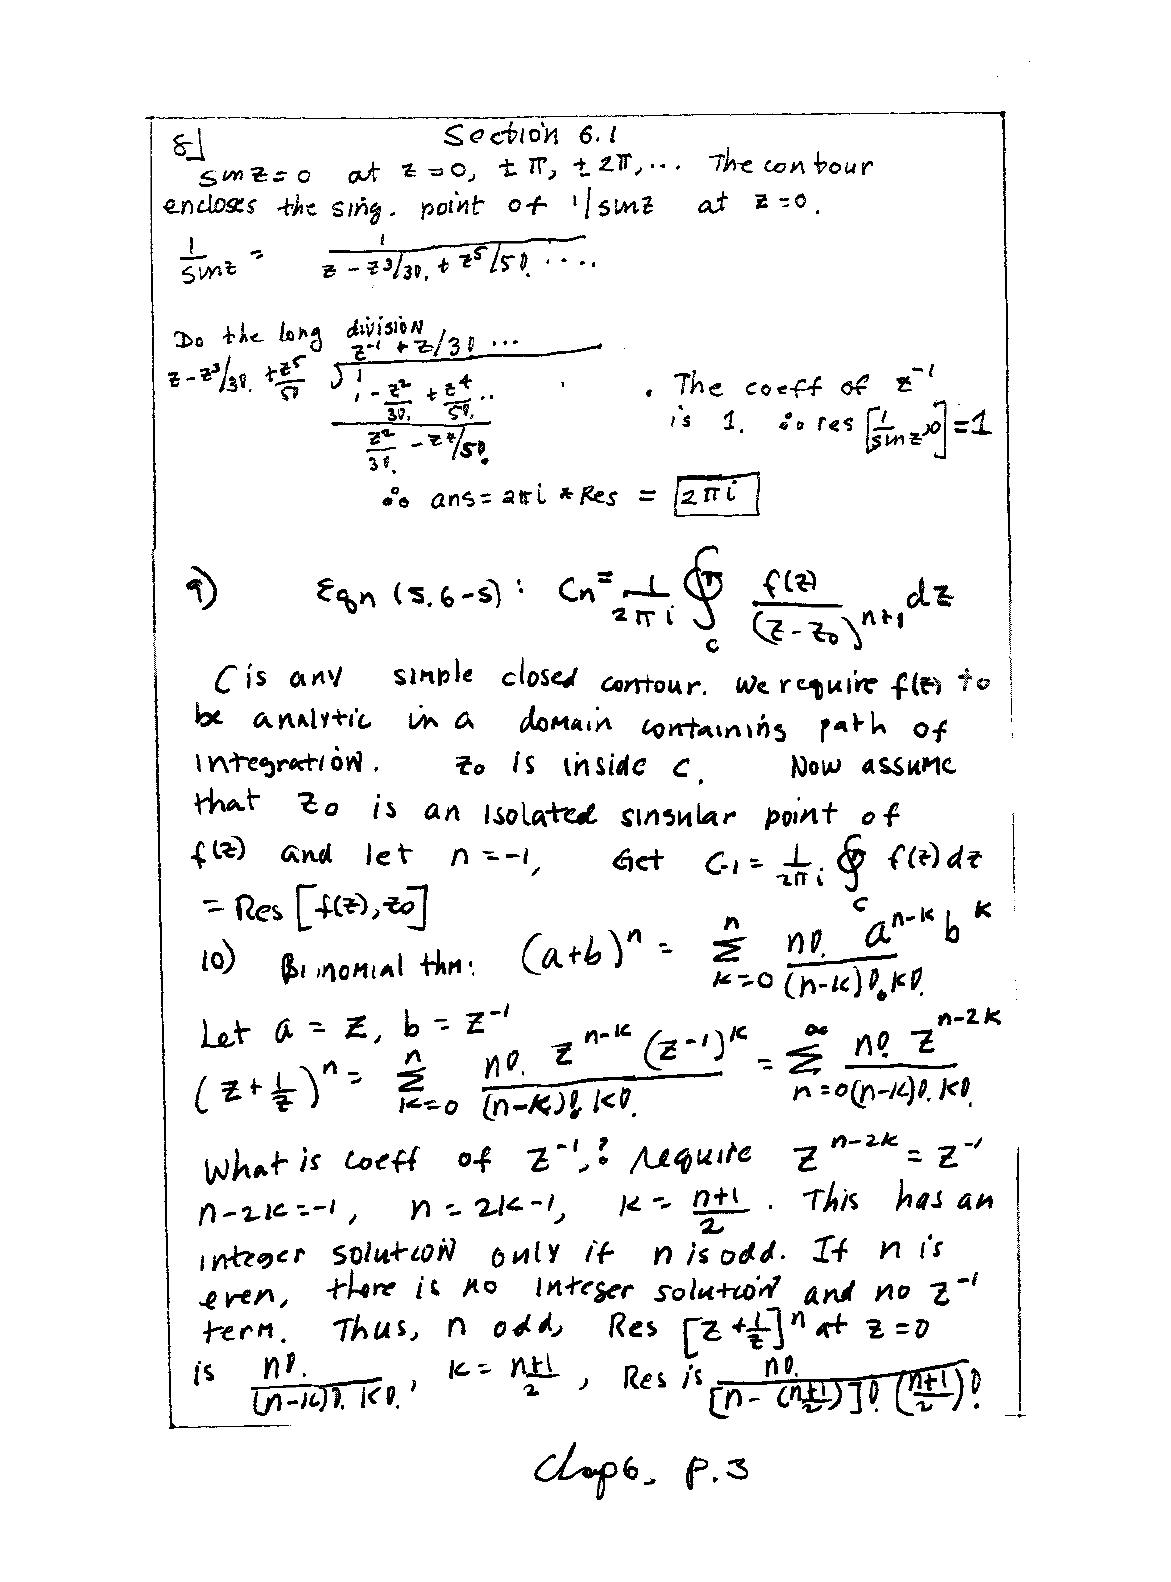 Section 6.1
8]
sin z = 0 at z = 0, ± π, ± 2π, ... The contour
encloses the sing. point of 1/sin z at z = 0.
1/sin z = 1/(z - z³/3! + z⁵/5! ....)
Do the long division
z⁻¹ + z/3! ...
z - z³/3! + z⁵/5! √1
1 - z²/3! + z⁴/5! ..
z²/3! - z⁴/5!
. The coeff of z⁻¹
is 1. ∴ res [1/sin z, 0] = 1
∴ ans = 2πi * Res = 2πi
9) Eqn (5.6-5): Cn = 1/(2πi) ∮_C f(z)/(z-z₀)ⁿ⁺¹ dz
C is any simple closed contour. We require f(z) to
be analytic in a domain containing path of
integration. z₀ is inside C. Now assume
that z₀ is an isolated singular point of
f(z) and let n = -1, Get C₋₁ = 1/(2πi) ∮_C f(z) dz
= Res [f(z), z₀]
10) Binomial thm: (a+b)ⁿ = Σ_{k=0}^{n} n! aⁿ⁻ᵏ bᵏ/((n-k)! k!)
Let a = z, b = z⁻¹
(z + 1/z)ⁿ = Σ_{k=0}^{n} n! zⁿ⁻ᵏ (z⁻¹)ᵏ/((n-k)! k!) = Σ_{n=0}^{∞} n! zⁿ⁻²ᵏ/((n-k)! k!)
What is coeff of z⁻¹,? require zⁿ⁻²ᵏ = z⁻¹
n-2k = -1, n = 2k-1, k = (n+1)/2 . This has an
integer solution only if n is odd. If n is
even, there is no integer solution and no z⁻¹
term. Thus, n odd, Res [z + 1/z]ⁿ at z = 0
is n!/((n-k)! k!), k = (n+1)/2, Res is n!/([n - ((n+1)/2)]! ((n+1)/2)!)
Chap 6, p.3